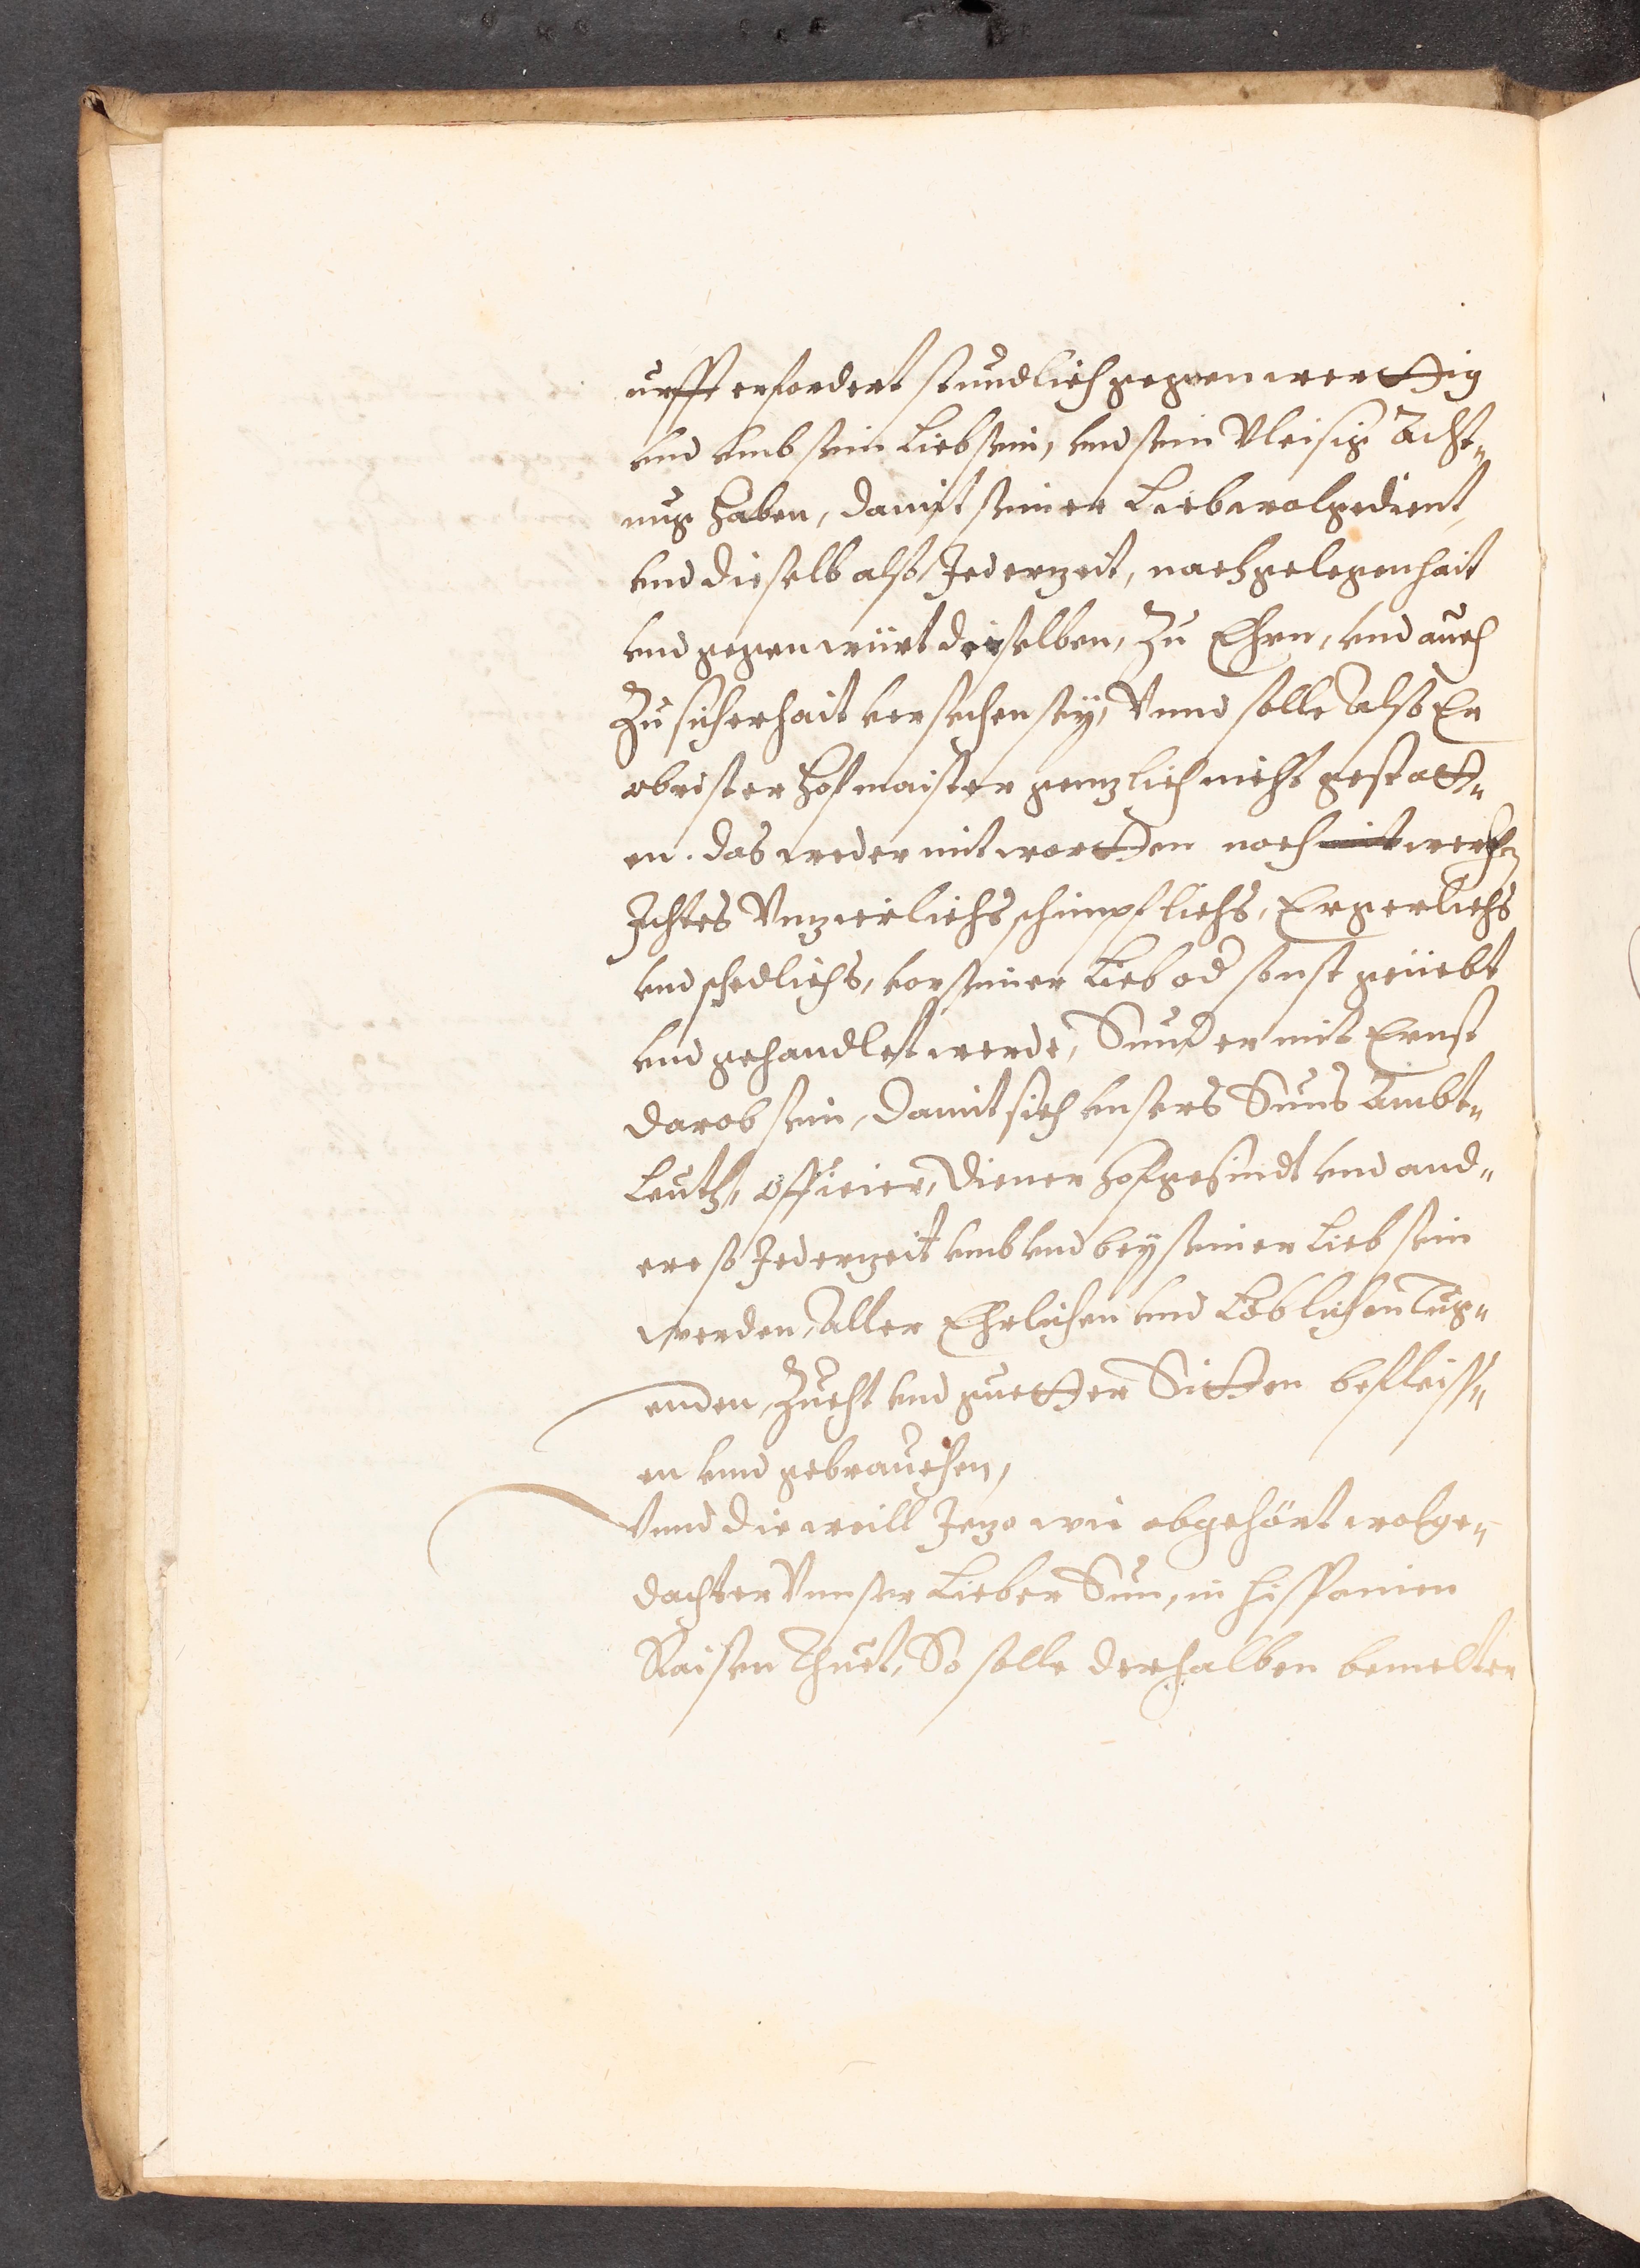 urfft erfordert stundlich gegenwerttig
vnd vmb sein Lieb sein, vnd sein vleisig Acht„
nug haben, damit seiner Lieb wolgedient,
vnd dieselb also Jederzeit, nach gelegenhait
vnd gegenwürt derselben, zu Ehrn, vnd auch
zu sicherhait versechen seÿ, Vnnd solle Also Er
obrister hofmaister genzlich nicht gestatt„
en. das weder mit wortten noch mit werkhen
Ichtes Vnzierlichs schimpflichs, Ergerlichs
vnd schedlichs, vor seiner Lieb od sonst geüebt
vnd gehandlet werde, Sunder mit Ernst
darob sein, damit sich vnsers Suns Ambt„
Leuth, officier, Diener hofgesindt vnd and„
ere so Jederzeit vmb vnd beÿ seiner Lieb sein
werden, Aller Ehrlichen vnd Löblichen Tug„
enden, Zucht vnd guetter Sitten befleiss„
en vnd gebrauchen,
Vnnd die weill Jezo wie obgehört wolge„
dachter Vnnser Lieber Sun, in hispanien
Raisen Thuet, So solle derhalben bemelter